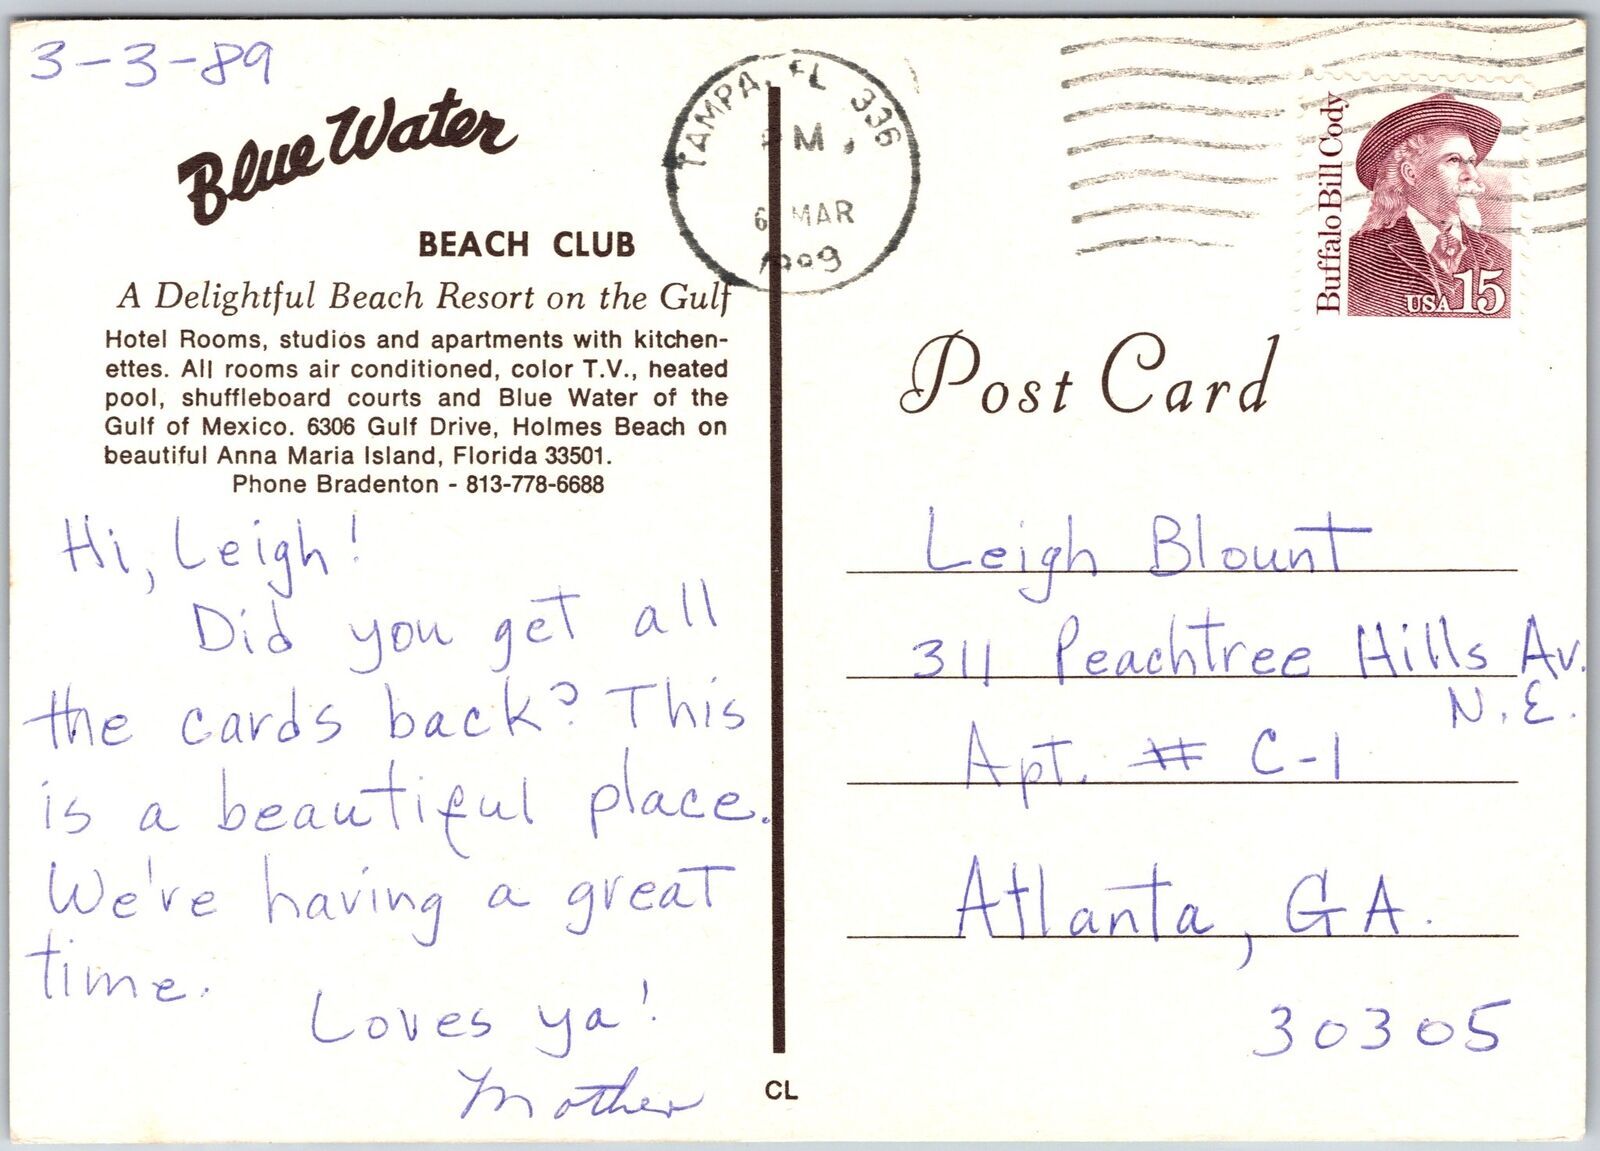 3-3-89
Blue Water
BEACH CLUB
A Delightful Beach Resort on the Gulf
Hotel Rooms, studios and apartments with kitchen-
ettes. All rooms air conditioned, color T.V., heated
pool, shuffleboard courts and Blue Water of the
Gulf of Mexico. 6306 Gulf Drive, Holmes Beach on
beautiful Anna Maria Island, Florida 33501.
Phone Bradenton - 813-778-6688
Hi, Leigh!
Did you get all
the cards back? This
is a beautiful place.
We're having a great
time.
Loves ya!
Mother
CL
TAMPA, FL 336
PM
6 MAR
Buffalo Bill Cody
USA 15
Post Card
Leigh Blount
311 Peachtree Hills Av.
N.E.
Apt. # C-1
Atlanta, GA.
30305